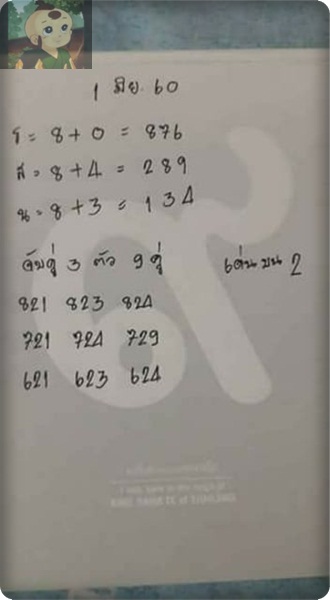 1 มิย. 60
ร = 8+0 = 876
ส = 8+4 = 289
น = 8+3 = 134
จับคู่ 3 ตัว 9 คู่
เด่นบน 2
821 823 824
721 724 729
621 623 624